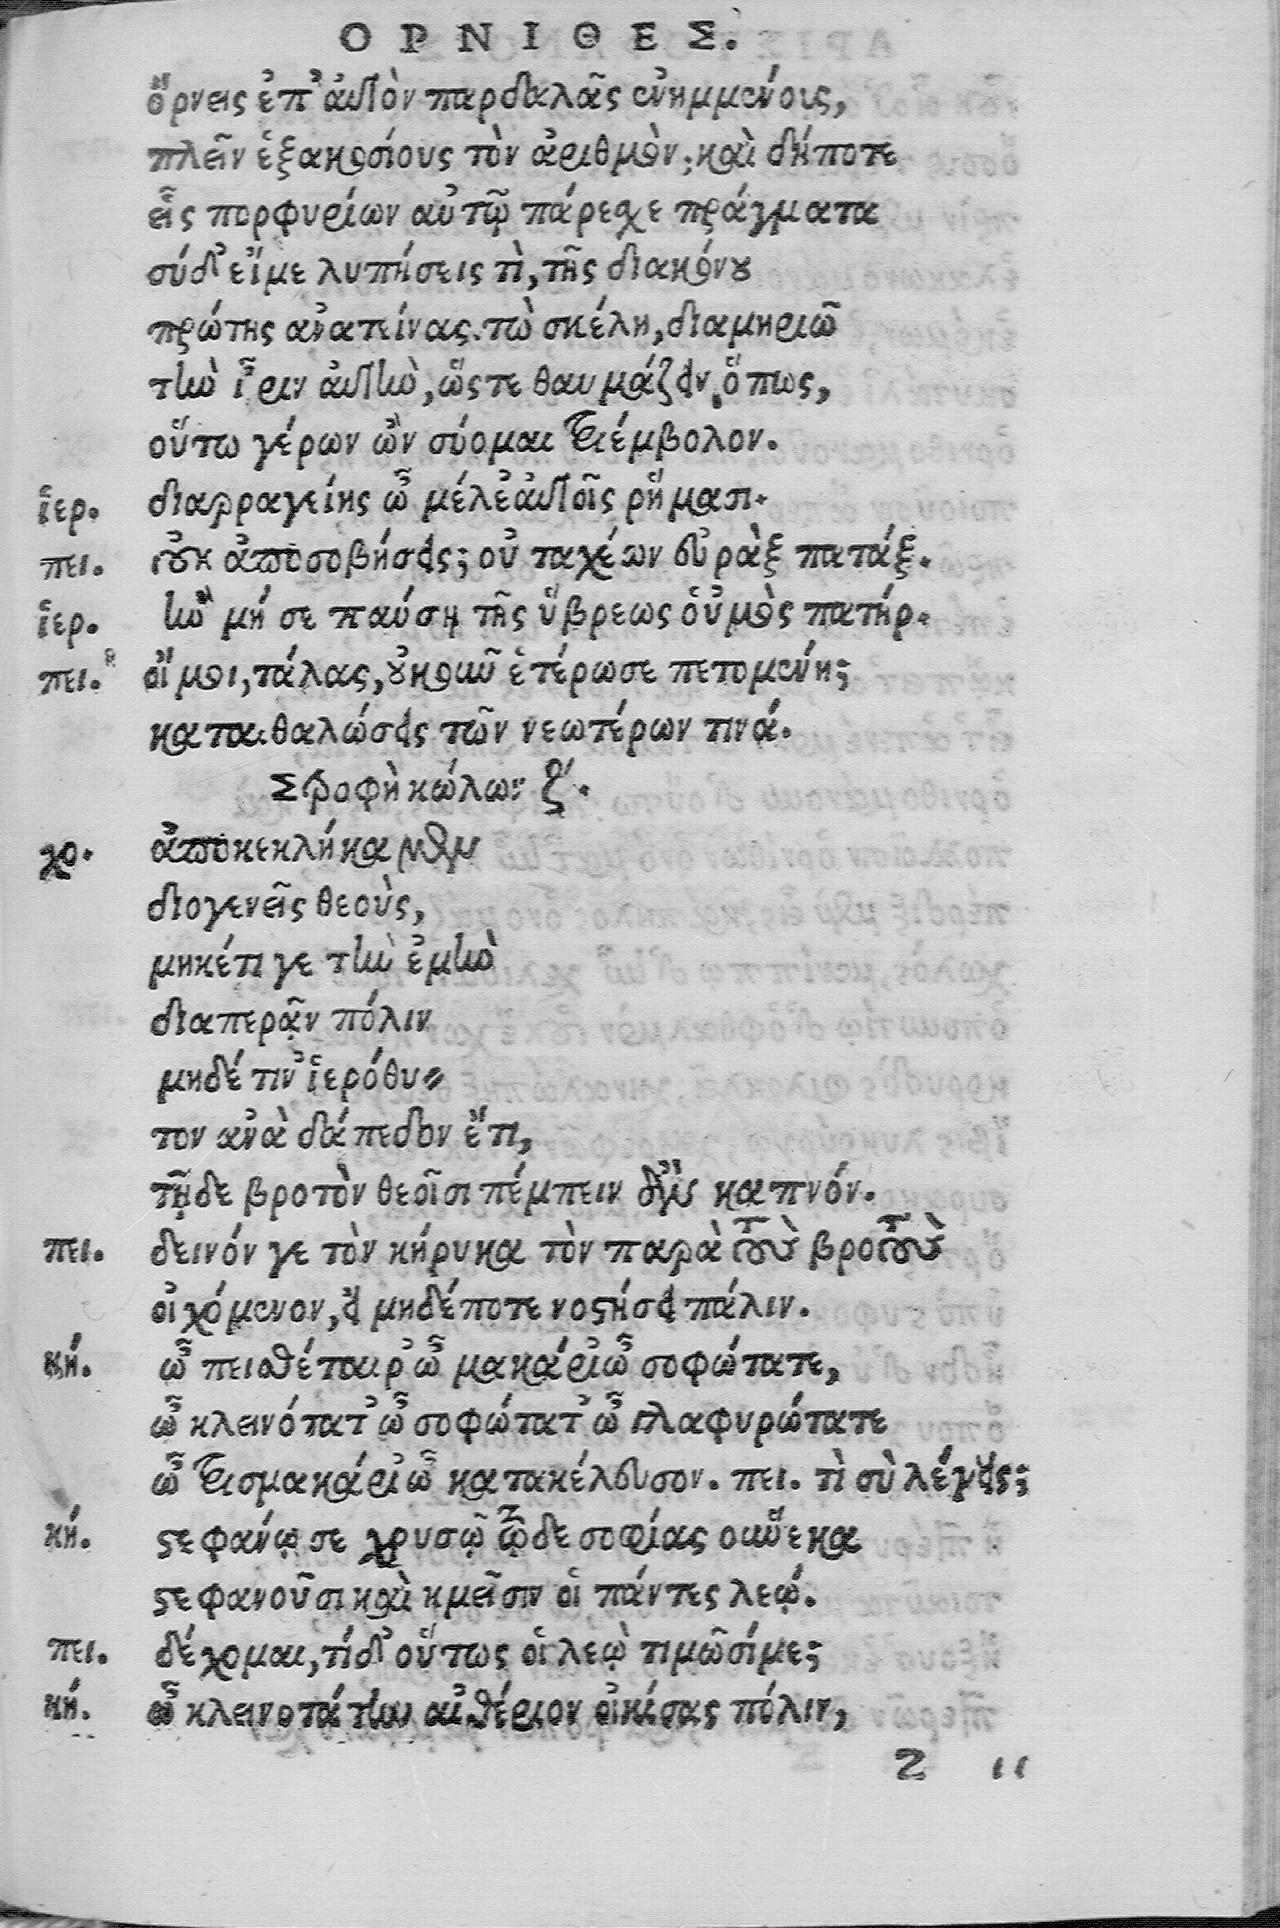 ΟΡΝΙΘΕΣ.
ὄρνεις ἐπ' αὐτὸν παρδαλᾶς ἐνημμένους,
πλεῖν ἑξακοσίους τὸν ἀριθμὸν· καὶ δήποτε
εἷς πορφυρίων αὐτῷ πάρεχε πράγματα
σύδ' εἴμε λυπήσεις τὶ, τῆς διακόνου
πρώτης ἀνατείνας τὼ σκέλη, διαμηριῶ
τὴν ἶριν αὐτὴν, ὥςτε θαυμάζειν ὅπως,
οὕτω γέρων ὢν στύομαι τριέμβολον.
ἶερ. διαρραγείης ὦ μέλε' αὐτοῖς ῥήμασι.
πει. οὐκ ἀποσοβήσεις; οὐ ταχέων εὐρὰξ πατάξ.
ἶερ. ἦν μή σε παύσῃ τῆς ὕβρεως οὑμὸς πατήρ.
πει. οἴμοι, τάλας, οὐκοῦν ἑτέρωσε πετομένη;
καταιθαλώσεις τῶν νεωτέρων τινά.
Στροφὴ κώλων ζ'.
χο. ἀποκεκλήκαμεν
διογενεῖς θεοὺς,
μηκέτι γε τὴν ἐμὴν
διαπερᾷν πόλιν
μηδέ τιν' ἱερόθυ=
τον ἀνὰ δάπεδον ἔτι,
τῇδε βροτὸν θεοῖσι πέμπειν καπνόν.
πει. δεινόν γε τὸν κήρυκα τὸν παρὰ τοὺς βροτοὺς
οἰχόμενον, εἰ μηδέποτε νοςήσει πάλιν.
κή. ὦ πειθέταιρ' ὦ μακάρι' ὦ σοφώτατε,
ὦ κλεινότατ' ὦ σοφώτατ' ὦ γλαφυρώτατε
ὦ τρισμακάρι' ὦ κατακέλευσον. πει. τὶ σὺ λέγεις;
κή. ςεφάνῳ σε χρυσῷ τῷδε σοφίας οὕνεκα
ςεφανοῦσι καὶ κμεῖσιν οἱ πάντες λεῴ.
πει. δέχομαι, τίδ' οὕτως οἱ λεῲ τιμῶσίμε;
κή. ὦ κλεινοτάτην αἰθέριον οἰκίσας πόλιν,
Z ιι